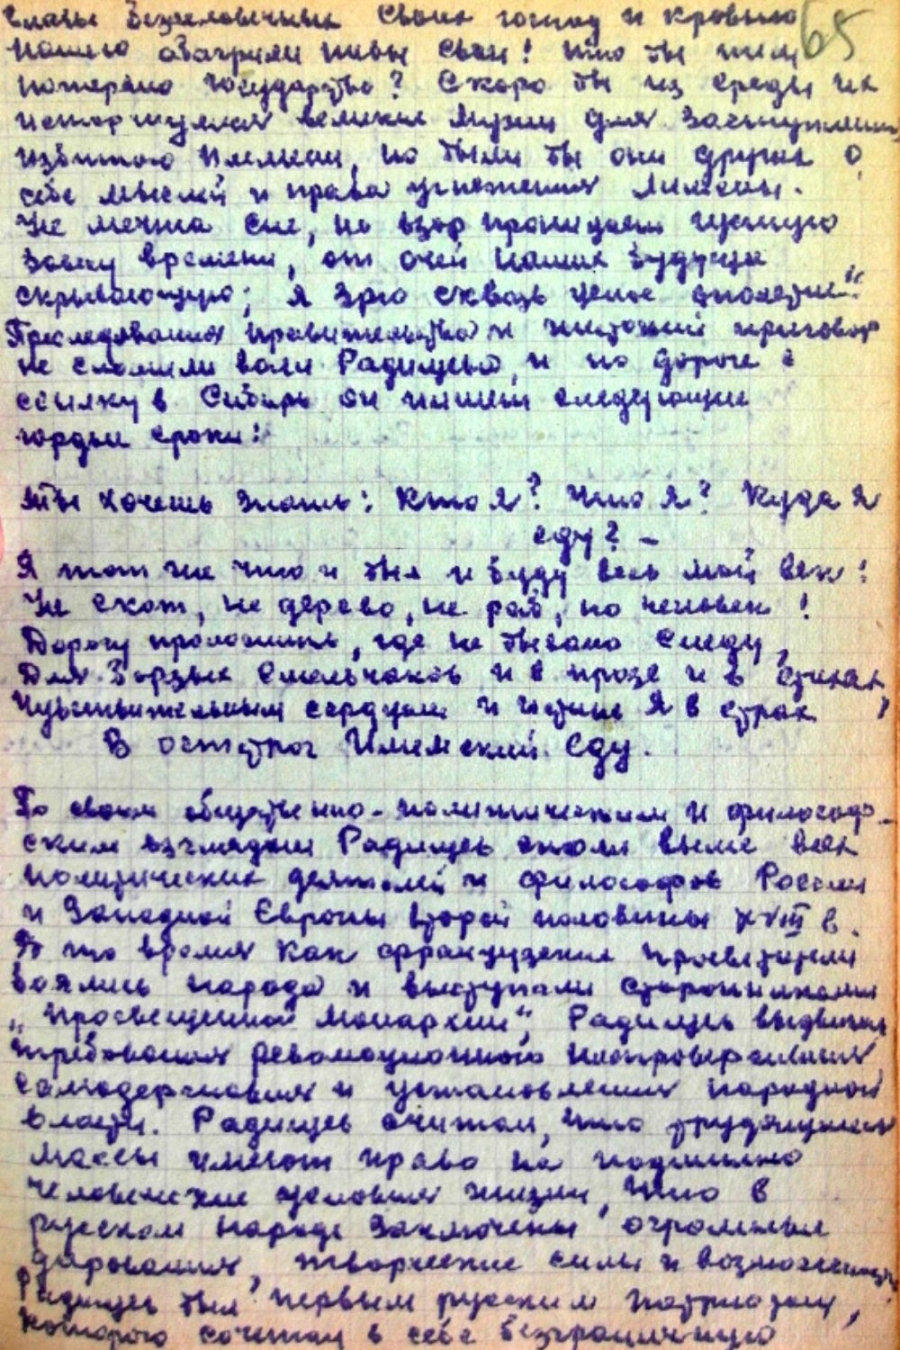 главы безчеловечных своих господ и кровью 65
нашею обагрили нивы свои! Что бы тем
потеряло государство? Скоро бы из среды их
исторгнулися великие мужи для заступления
избитого племени, но были бы они других о
себе мыслей и права угнетения лишены.
Не мечта сие, но взор проницает густую
завесу времени, от очей наших будущее
скрывающую; я зрю сквозь целое столетие".
Преследования правительства и жестокий приговор
не сломили воли Радищева, и по дороге в
ссылку в Сибирь он пишет следующие
гордые строки:
Ты хочешь знать: Кто я? Что я? Куда я
еду? –
Я тот же что и был и буду весь мой век:
Не скот, не дерево, не раб, но человек!
Дорогу проложить, где не бывало следу,
Для борзых смельчаков и в прозе и в стихах,
Чувствительным сердцам и истине я в страх
В острог Илимский еду.
По своим общественно-политическим и философ-
ским взглядам Радищев стоял выше всех
политических деятелей и философов России
и Западной Европы второй половины XVIII в.
В то время как французские просветители
боялись народа и выступали сторонниками
"просвещенной монархии", Радищев выдвигал
требования революционного ниспровержения
самодержавия и установления народной
власти. Радищев считал, что трудящиеся
массы имеют право на подлинно
человеческие условия жизни, что в
русском народе заключены огромные
дарования, творческие силы и возможности
Радищев был первым русским патриотом,
которого сочетал в себе безграничную